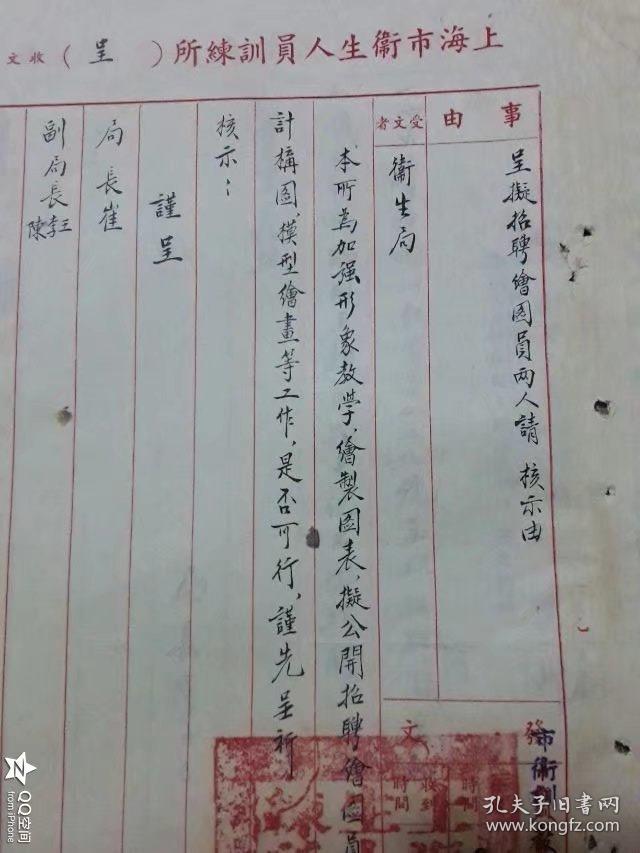 上海市衞生人員訓練所（呈）收文
事由
呈擬招聘繪圖員兩人請 核示由
受文者
衞生局
本所為加强形象教學、繪製圖表、擬公開招聘繪圖員
計構圖、模型繪畫等工作、是否可行、謹先呈祈
核示：
謹呈
局長崔
副局長 李王陳
發文
市衞訓
時間
收到時間
QQ空间
from iPhone
孔夫子旧书网
www.kongfz.com